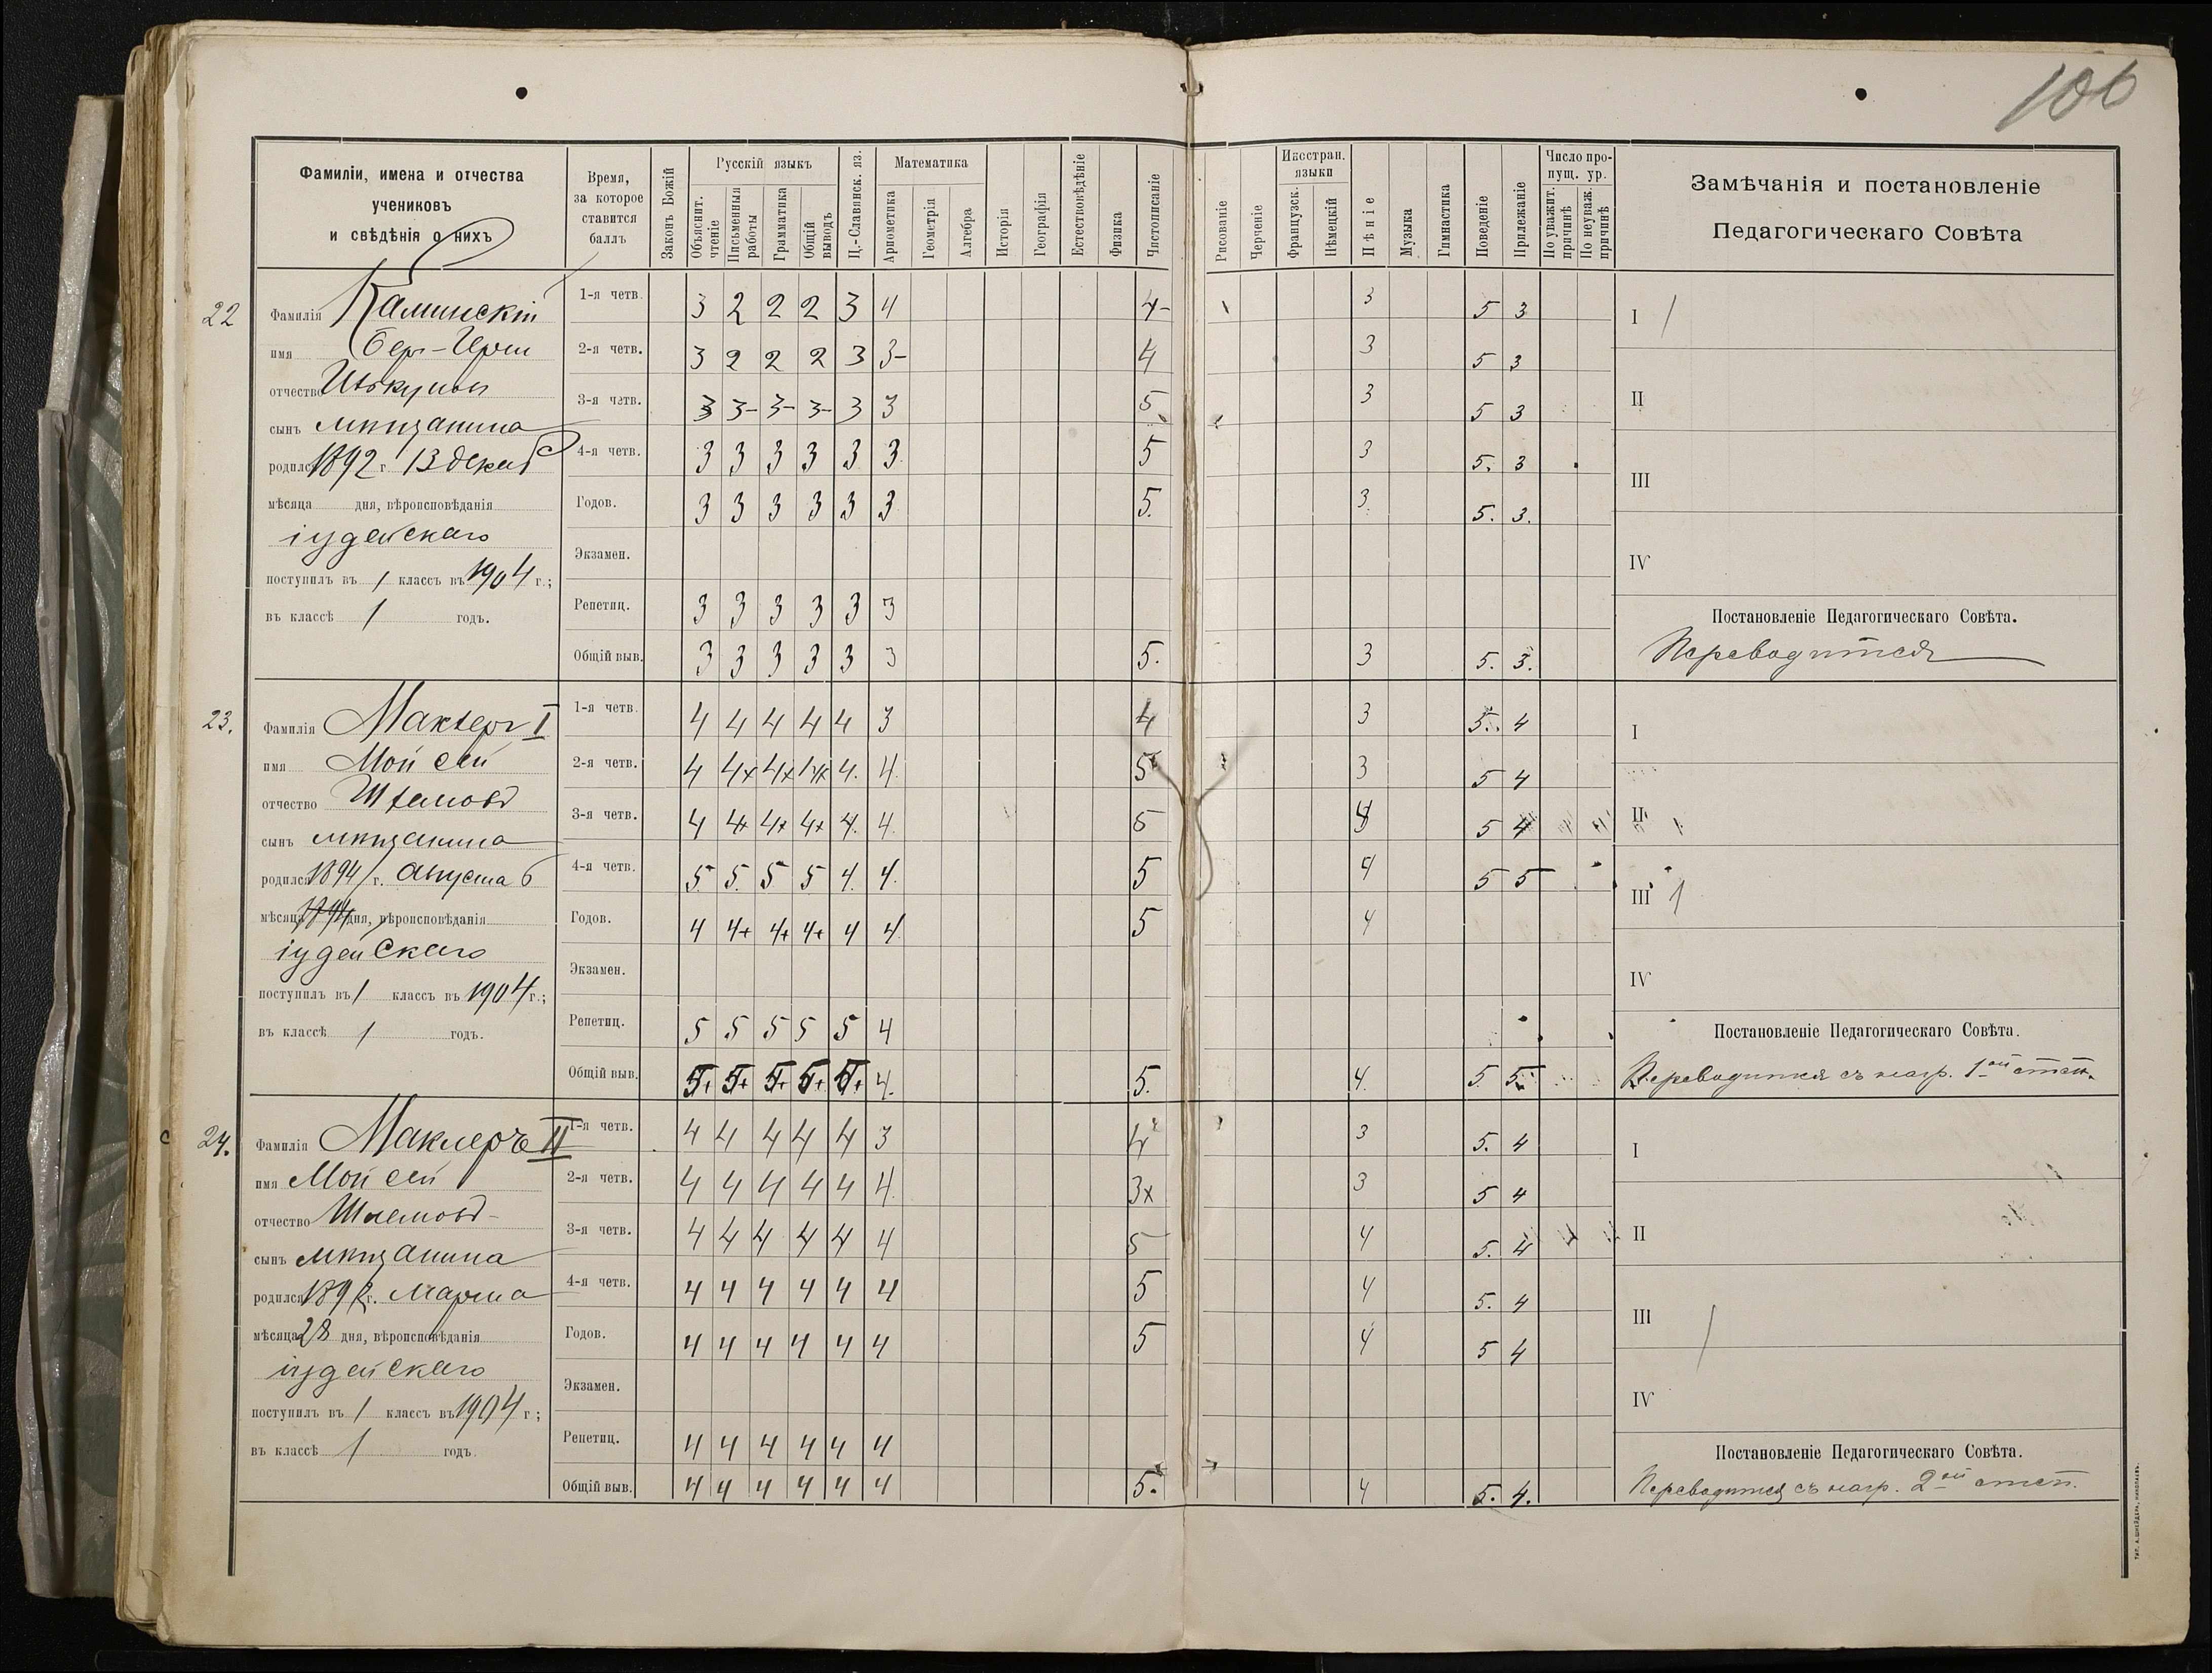 106
Фамиліи, имена и отчества
учениковъ
и свѣдѣнія о нихъ
Время,
за которое
ставится
баллъ
Законъ Божій
Русскій языкъ
Объяснит. чтеніе
Письменныя работы
Грамматика
Общій выводъ
Ц.-Славянск. яз.
Математика
Ариѳметика
Геометрія
Алгебра
Исторія
Географія
Естествовѣдѣніе
Физика
Чистописаніе
Рисованіе
Черченіе
Иностран. языки
Французск.
Нѣмецкій
Пѣніе
Музыка
Гимнастика
Поведеніе
Прилежаніе
Число пропущ. ур.
По уважит. причинѣ
По неуваж. причинѣ
Замѣчанія и постановленіе
Педагогическаго Совѣта
22
Фамилія Каминскій
имя Бер-Герш
отчество
сынъ мѣщанина
родился 1892 г. 13 декаб
мѣсяца дня, вѣроисповѣданія
іудейскаго
поступилъ въ 1 классъ въ 1904 г.;
въ классѣ 1 годъ.
1-я четв. 3 2 2 2 3 4 4- 3 5 3
2-я четв. 3 2 2 2 3 3- 4 3 5 3
3-я четв. 3 3- 3- 3- 3 3 5 3 5 3
4-я четв. 3 3 3 3 3 3 5 3 5. 3
Годов. 3 3 3 3 3 3 5. 3. 5. 3.
Экзамен.
Репетиц. 3 3 3 3 3 3
Общій выв. 3 3 3 3 3 3 5. 3 5. 3.
I
II
III
IV
Постановленіе Педагогическаго Совѣта.
Переводится
23.
Фамилія Маклеръ I
имя Мойсей
отчество Шлемовъ
сынъ мѣщанина
родился 1894 г. Августа 6
мѣсяца 1894 дня, вѣроисповѣданія
іудейскаго
поступилъ въ 1 классъ въ 1904 г.;
въ классѣ 1 годъ.
1-я четв. 4 4 4 4 4 3 4 3 5. 4
2-я четв. 4 4+ 4+ 4+ 4. 4. 5 3 5 4
3-я четв. 4 4+ 4+ 4+ 4. 4. 5 4 5 4
4-я четв. 5 5. 5 5 4. 4. 5 4 5 5
Годов. 4 4+ 4+ 4+ 4 4 5 4
Экзамен.
Репетиц. 5 5 5 5 5 4
Общій выв. 5+ 5+ 5+ 5+ 5+ 4. 5. 4. 5 5
I
II
III
IV
Постановленіе Педагогическаго Совѣта.
Переводится съ нагр. 1-ой степ.
24.
Фамилія Маклеръ II
имя Мойсей
отчество Шлемовъ
сынъ мѣщанина
родился 1892 г. Марта
мѣсяца 28 дня, вѣроисповѣданія
іудейскаго
поступилъ въ 1 классъ въ 1904 г.;
въ классѣ 1 годъ.
1-я четв. 4 4 4 4 4 3 4 3 5. 4
2-я четв. 4 4 4 4 4 4. 3+ 3 5 4
3-я четв. 4 4 4 4 4 4 5 4 5. 4
4-я четв. 4 4 4 4 4 4 5 4 5. 4
Годов. 4 4 4 4 4 4 5 4 5 4
Экзамен.
Репетиц. 4 4 4 4 4 4
Общій выв. 4 4 4 4 4 4 5. 4 5. 4.
I
II
III
IV
Постановленіе Педагогическаго Совѣта.
Переводится съ нагр. 2-ой степ.
ТИП. А. ШНЕЙДЕРА, НИКОЛАЕВЪ.